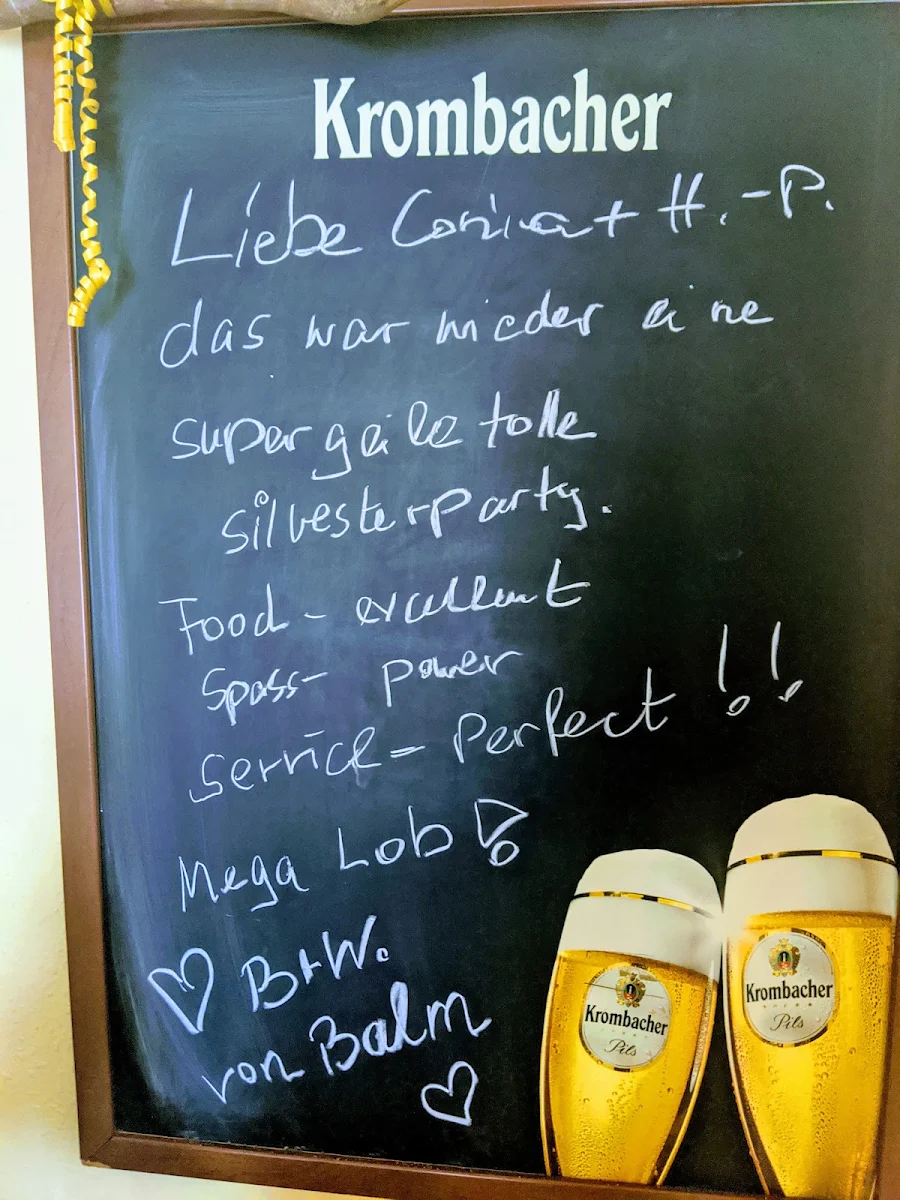 Krombacher
Liebe Corina + H.-P.
das war wieder eine
super geile tolle
Silvesterparty.
Food - excellent
Spass - power
Service = Perfect !!
Mega Lob !
B+W.
von Balm
Krombacher
Pils
Krombacher
Pils